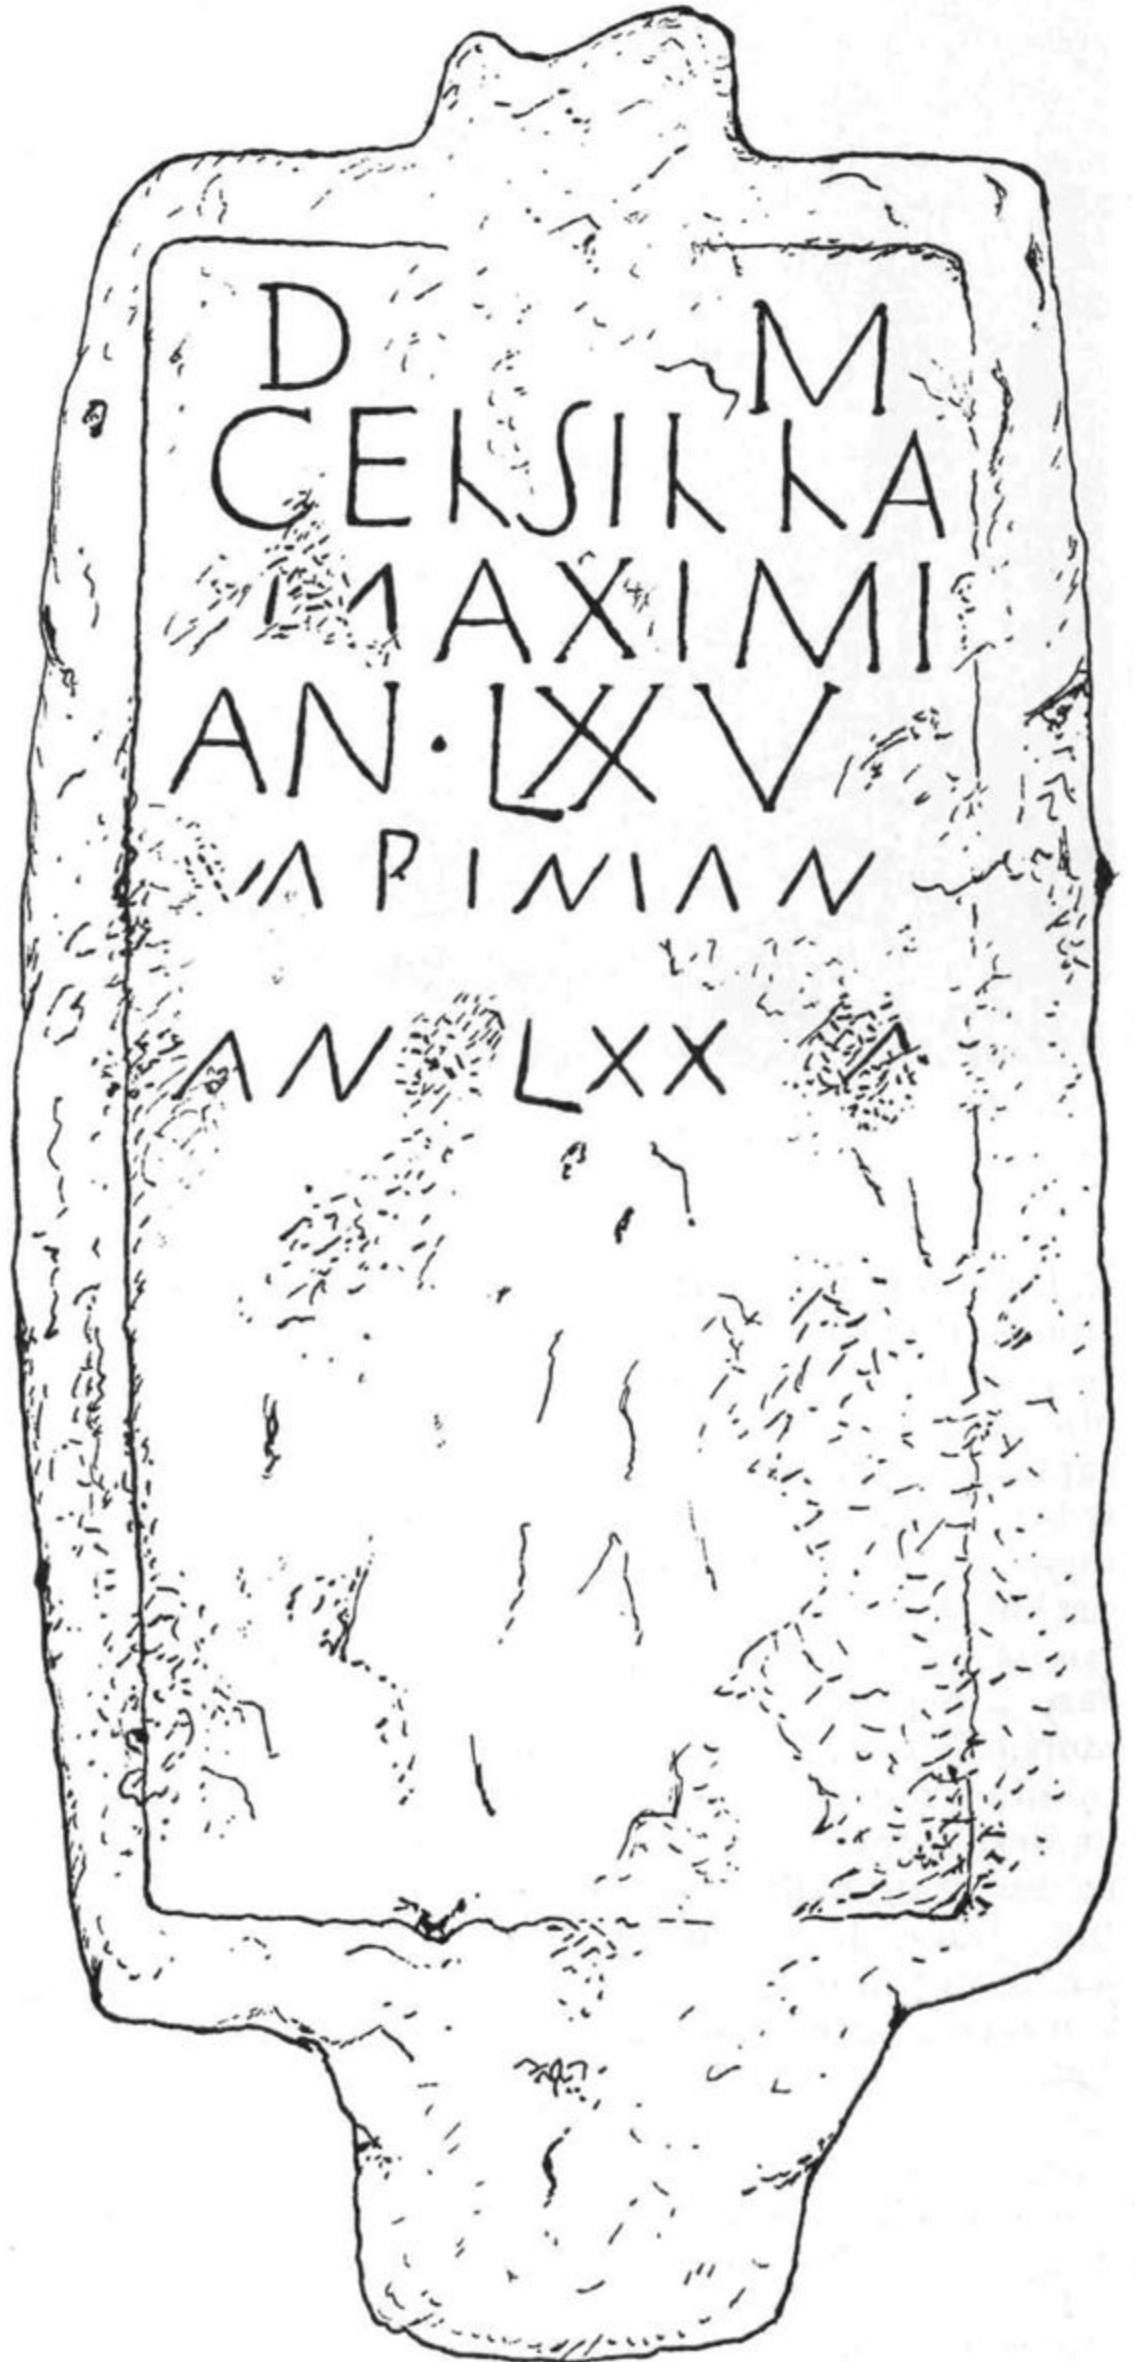 D M
CEKSIKKA
MAXIMI
AN·LXXV
APINIAN
AN LXX